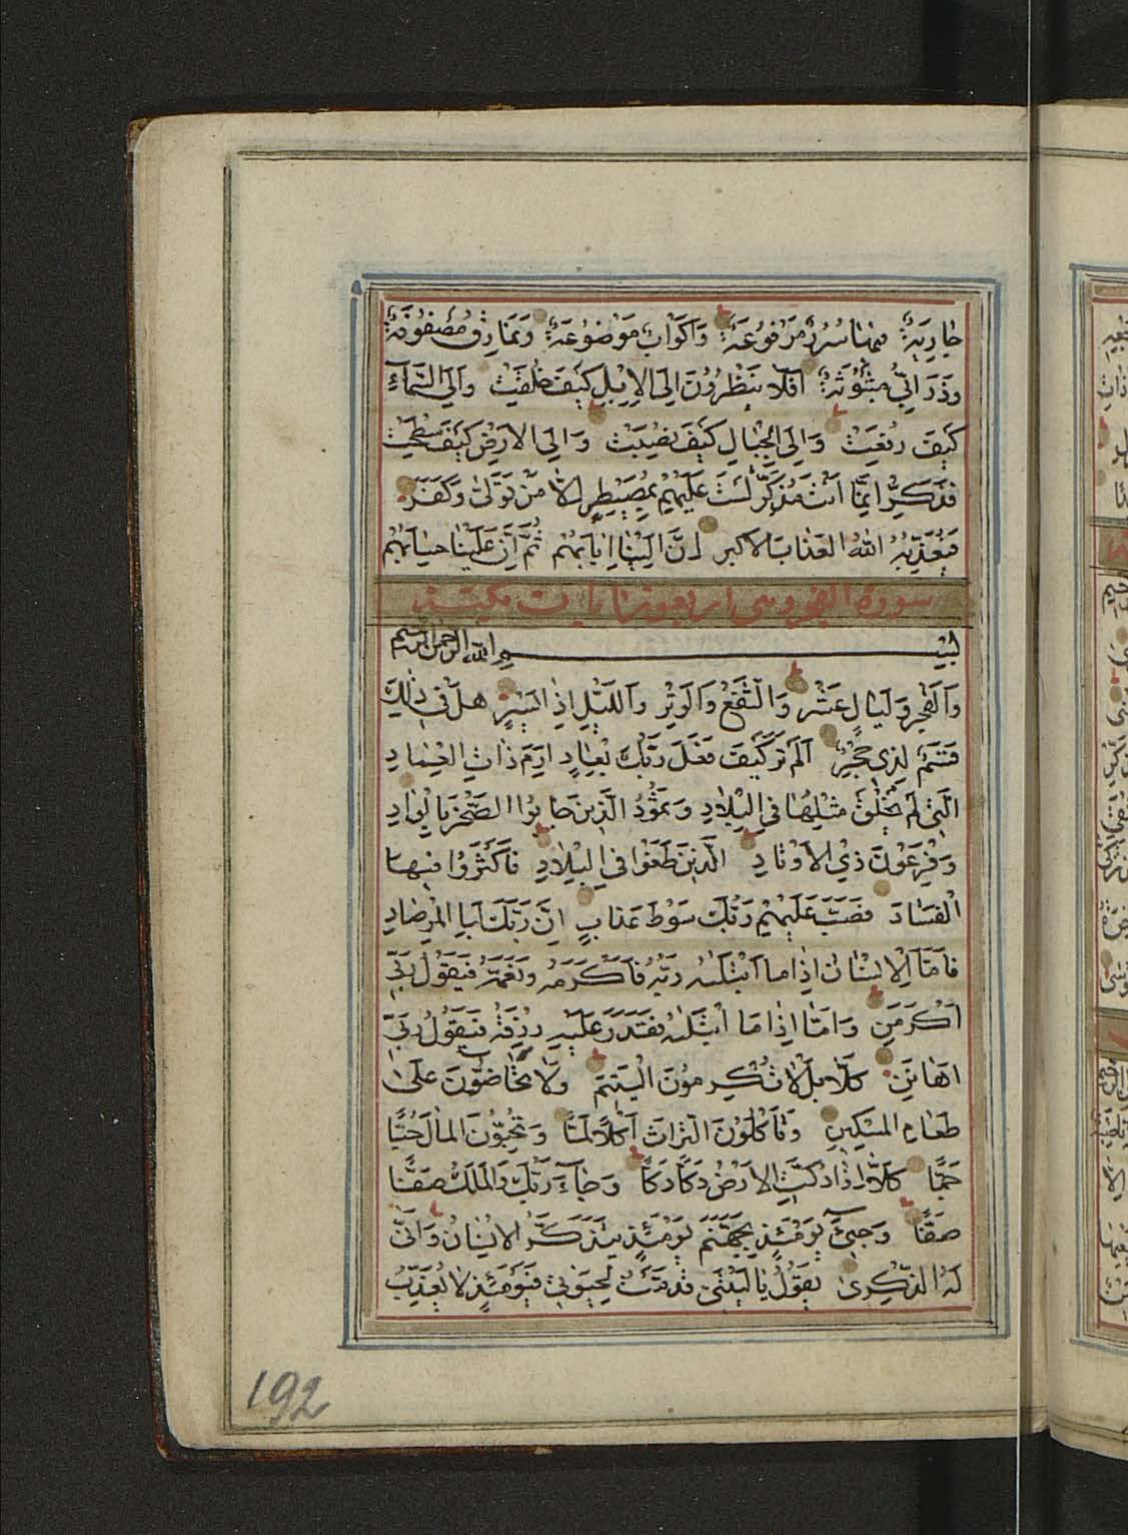 جَارِيَةٌ فِيهَا سُرُرٌ مَرْفُوعَةٌ وَاَكْوَابٌ مَوْضُوعَةٌ وَنَمَارِقُ مَصْفُوفَةٌ
وَزَرَابِيُّ مَبْثُوثَةٌ اَفَلَا يَنْظُرُونَ اِلَى الْاِبِلِ كَيْفَ خُلِقَتْ وَاِلَى السَّمَآءِ
كَيْفَ رُفِعَتْ وَاِلَى الْجِبَالِ كَيْفَ نُصِبَتْ وَاِلَى الْاَرْضِ كَيْفَ سُطِحَتْ
فَذَكِّرْ اِنَّمَا اَنْتَ مُذَكِّرٌ لَسْتَ عَلَيْهِمْ بِمُصَيْطِرٍ اِلَّا مَنْ تَوَلَّىٰ وَكَفَرَ
فَيُعَذِّبُهُ اللهُ الْعَذَابَ الْاَكْبَرَ اِنَّ اِلَيْنَا اِيَابَهُمْ ثُمَّ اِنَّ عَلَيْنَا حِسَابَهُمْ
سورة الفجر وهى آيات مكية
بِسْمِ اللهِ الرَّحْمٰنِ الرَّحِيمِ
وَالْفَجْرِ وَلَيَالٍ عَشْرٍ وَالشَّفْعِ وَالْوَتْرِ وَاللَّيْلِ اِذَا يَسْرِ هَلْ فِي ذٰلِكَ
قَسَمٌ لِذِي حِجْرٍ اَلَمْ تَرَ كَيْفَ فَعَلَ رَبُّكَ بِعَادٍ اِرَمَ ذَاتِ الْعِمَادِ
الَّتِي لَمْ يُخْلَقْ مِثْلُهَا فِي الْبِلَادِ وَثَمُودَ الَّذِينَ جَابُوا الصَّخْرَ بِالْوَادِ
وَفِرْعَوْنَ ذِي الْاَوْتَادِ الَّذِينَ طَغَوْا فِي الْبِلَادِ فَاَكْثَرُوا فِيهَا
الْفَسَادَ فَصَبَّ عَلَيْهِمْ رَبُّكَ سَوْطَ عَذَابٍ اِنَّ رَبَّكَ لَبِالْمِرْصَادِ
فَاَمَّا الْاِنْسَانُ اِذَا مَا ابْتَلٰىهُ رَبُّهُ فَاَكْرَمَهُ وَنَعَّمَهُ فَيَقُولُ رَبِّي
اَكْرَمَنِ وَاَمَّا اِذَا مَا ابْتَلٰىهُ فَقَدَرَ عَلَيْهِ رِزْقَهُ فَيَقُولُ رَبِّي
اَهَانَنِ كَلَّا بَلْ لَا تُكْرِمُونَ الْيَتِيمَ وَلَا تَحَاضُّونَ عَلَىٰ
طَعَامِ الْمِسْكِينِ وَتَأْكُلُونَ التُّرَاثَ اَكْلًا لَمًّا وَتُحِبُّونَ الْمَالَ حُبًّا
جَمًّا كَلَّا اِذَا دُكَّتِ الْاَرْضُ دَكًّا دَكًّا وَجَآءَ رَبُّكَ وَالْمَلَكُ صَفًّا
صَفًّا وَجِيءَ يَوْمَئِذٍ بِجَهَنَّمَ يَوْمَئِذٍ يَتَذَكَّرُ الْاِنْسَانُ وَاَنَّىٰ
لَهُ الذِّكْرَىٰ يَقُولُ يَا لَيْتَنِي قَدَّمْتُ لِحَيٰوتِي فَيَوْمَئِذٍ لَا يُعَذِّبُ
192